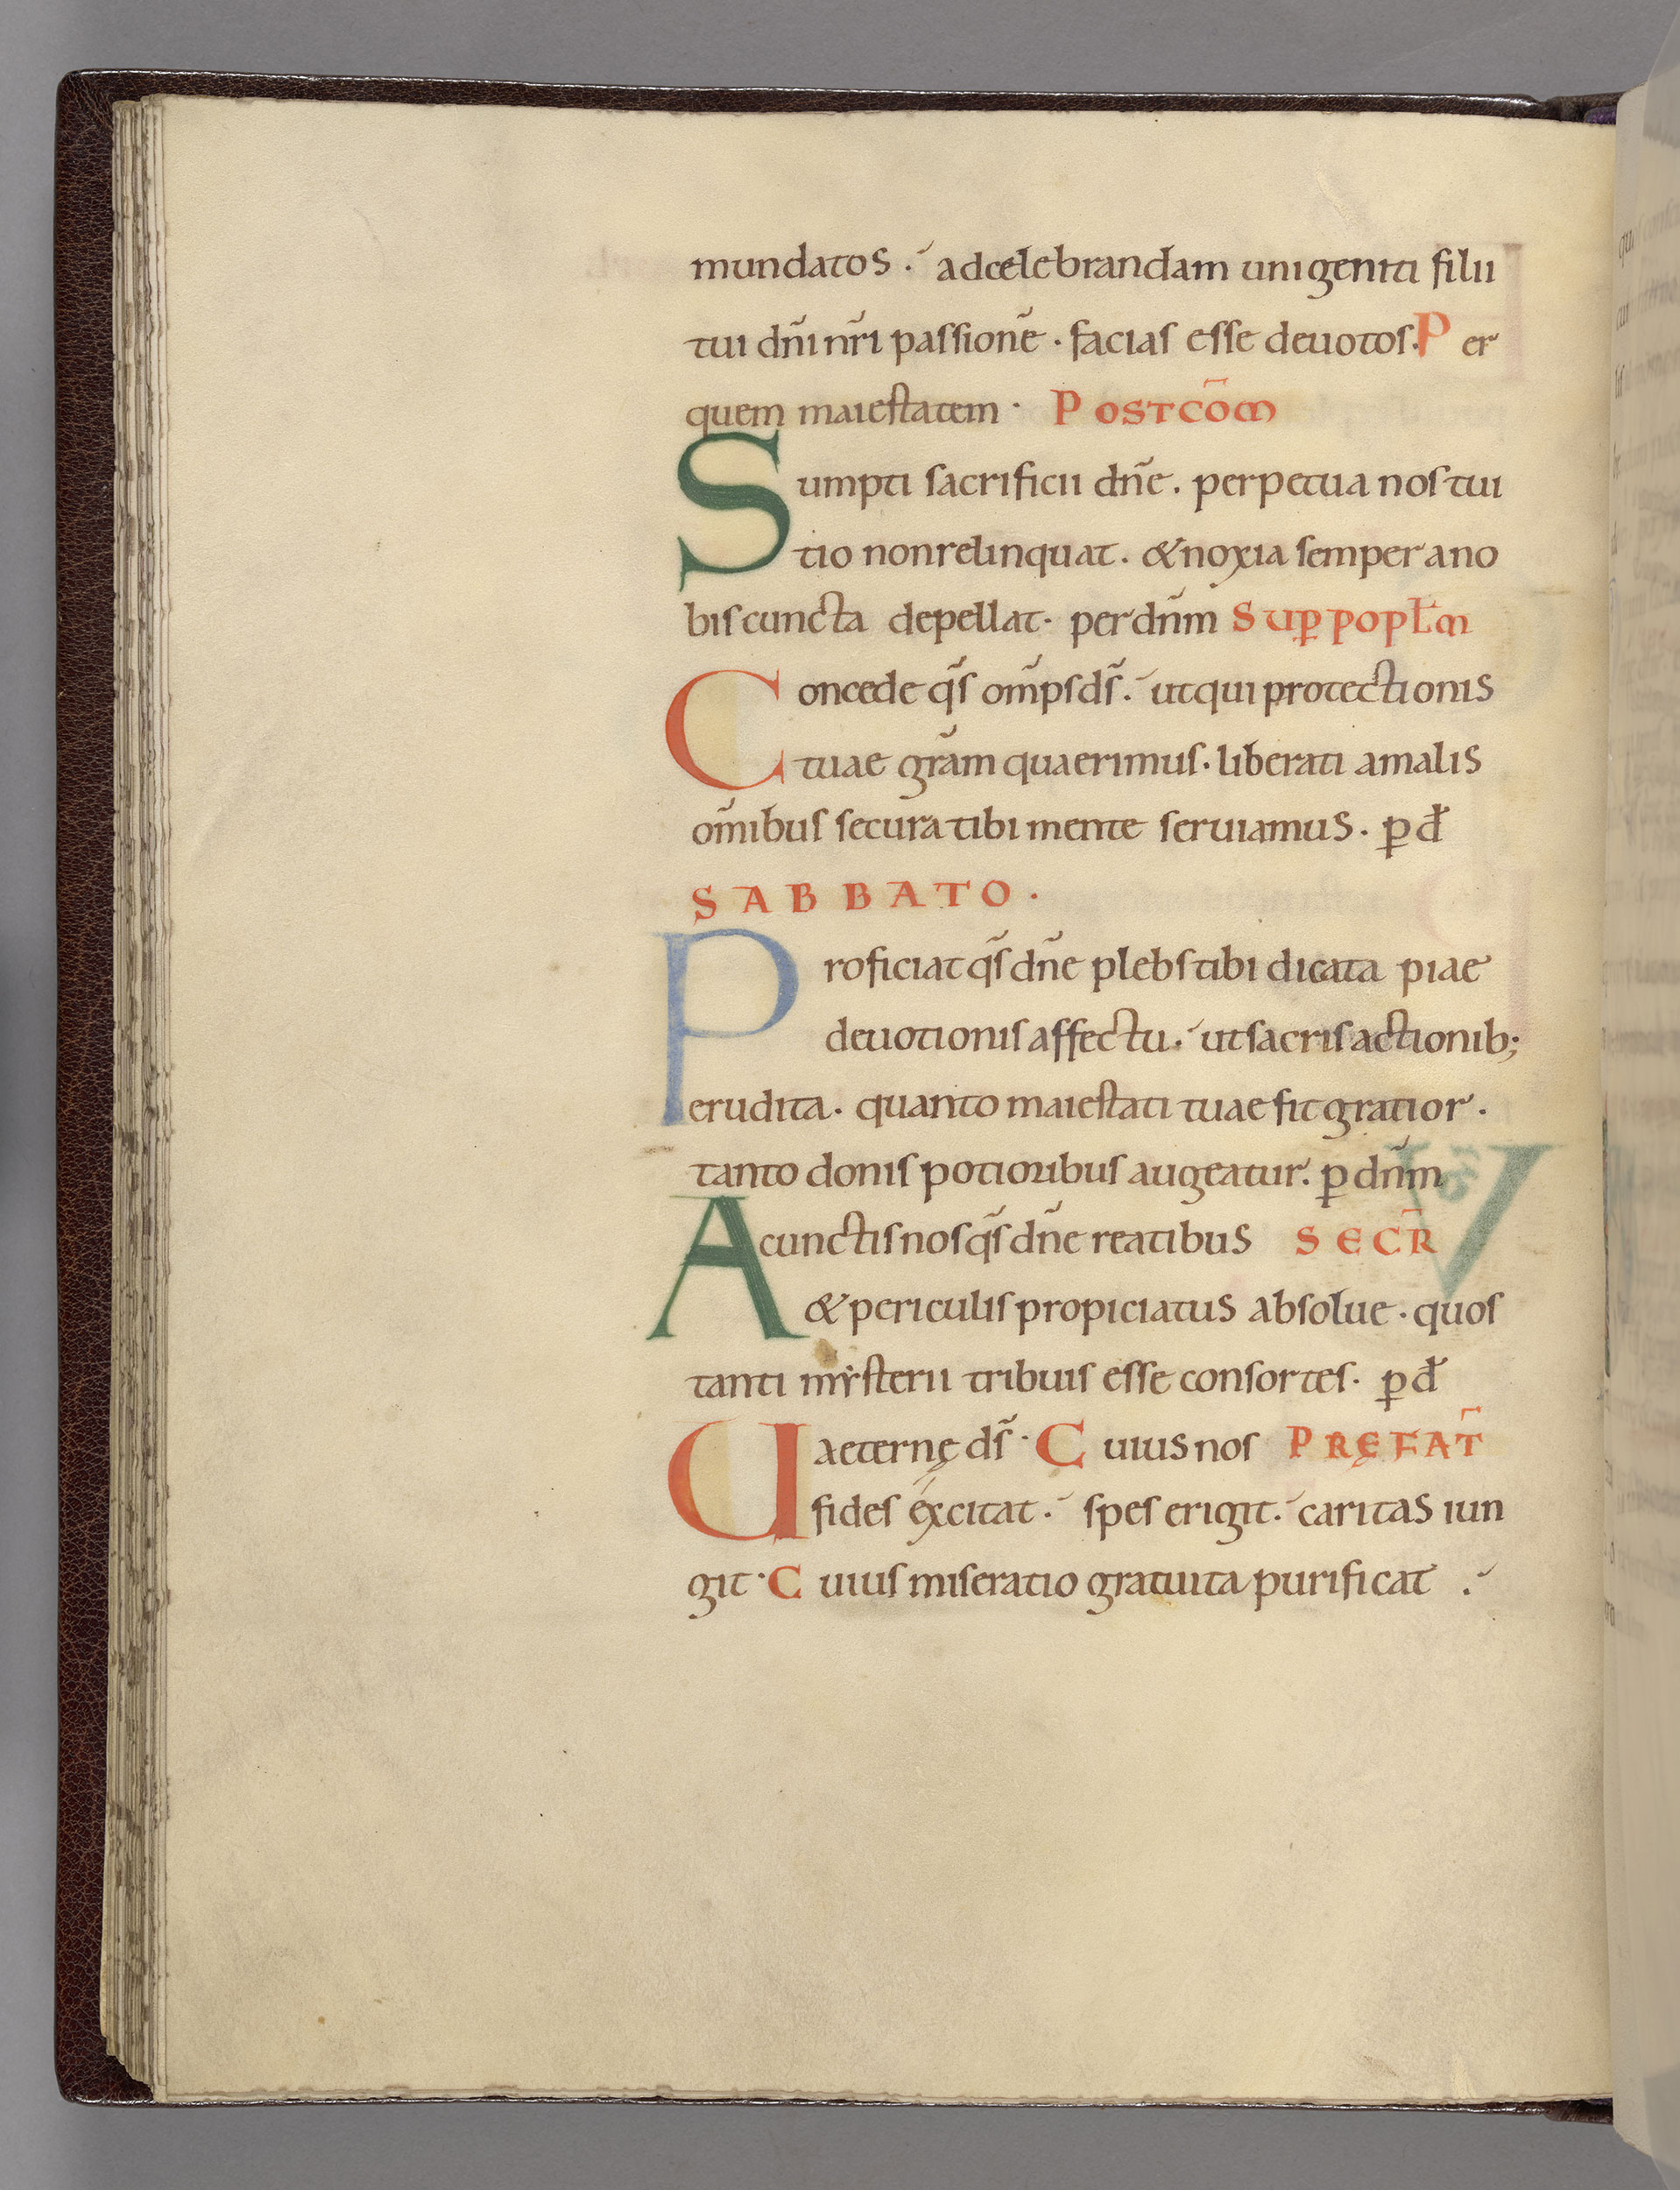 mundatos . ad celebrandam unigeniti filii
tui dñi nr̃i passionẽ . facias esse deuotos . Per
quem maiestatem . POSTCÕM
Sumpti sacrificii dñe . perpetua nos tui
tio non relinquat . & noxia semper a no
bis cuncta depellat . per dñm SUꝑ POPL̃M
Concede q̃s om̃ps ds̃ . ut qui protectionis
tuae gr̃am quaerimus . liberati a malis
om̃ibus secura tibi mente seruiamus . ꝑ đ
SABBATO .
Proficiat q̃s dñe plebs tibi dicata piae
deuotionis affectu . ut sacris actionib;
erudita . quanto maiestati tuae fit gratior .
tanto donis potioribus augeatur . ꝑ dñm
A cunctis nos q̃s dñe reatibus SECR̃
& periculis propiciatus absolue . quos
tanti mẏsterii tribuis esse consortes . ꝑ đ
U aeternę ds̃ . Cuius nos PRĘFAT̃
fides éxcitat . spes erigit . caritas iun
git . Cuius miseratio gratuita purificat .